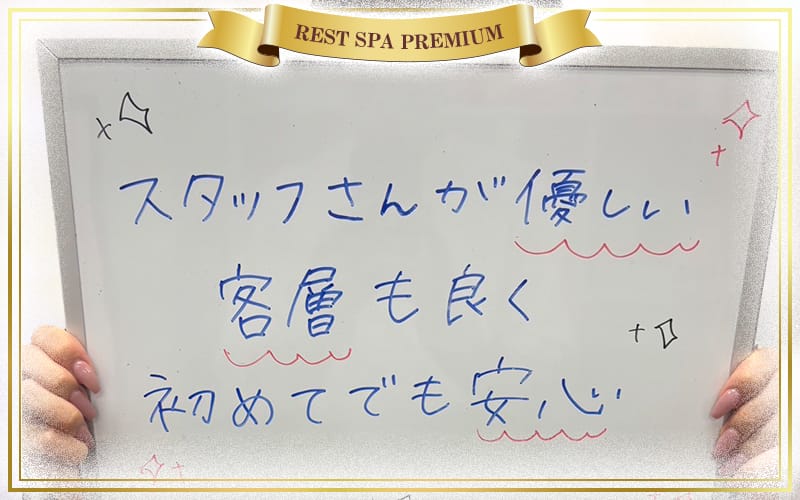 REST SPA PREMIUM
スタッフさんが優しい
客層も良く
初めてでも安心